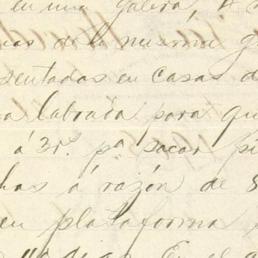 en una galera,
de la misma
sentadas en casas d
labrada para qu
á 3 rs. pa sacar pi
has á razón de
en plataforma
En el